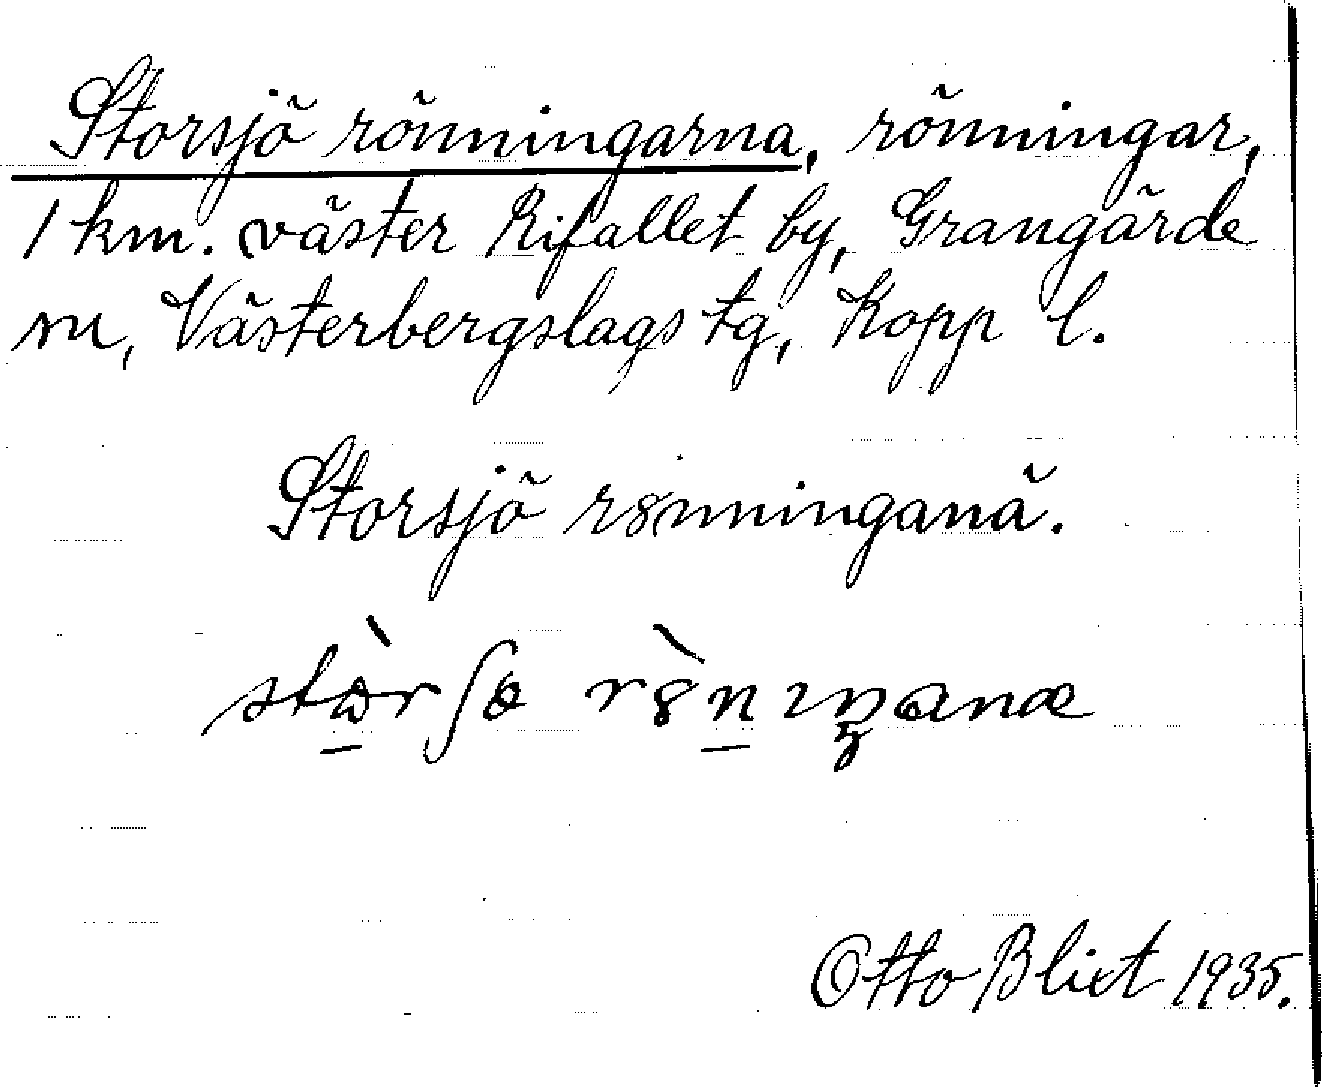 Storsjö rönningarna, rönningar,
1 km. väster Rifallet by, Grangärde
sn, Västerbergslags tg, Kopp l.
Storsjö r8nninganä.
Otto Blixt 1935.